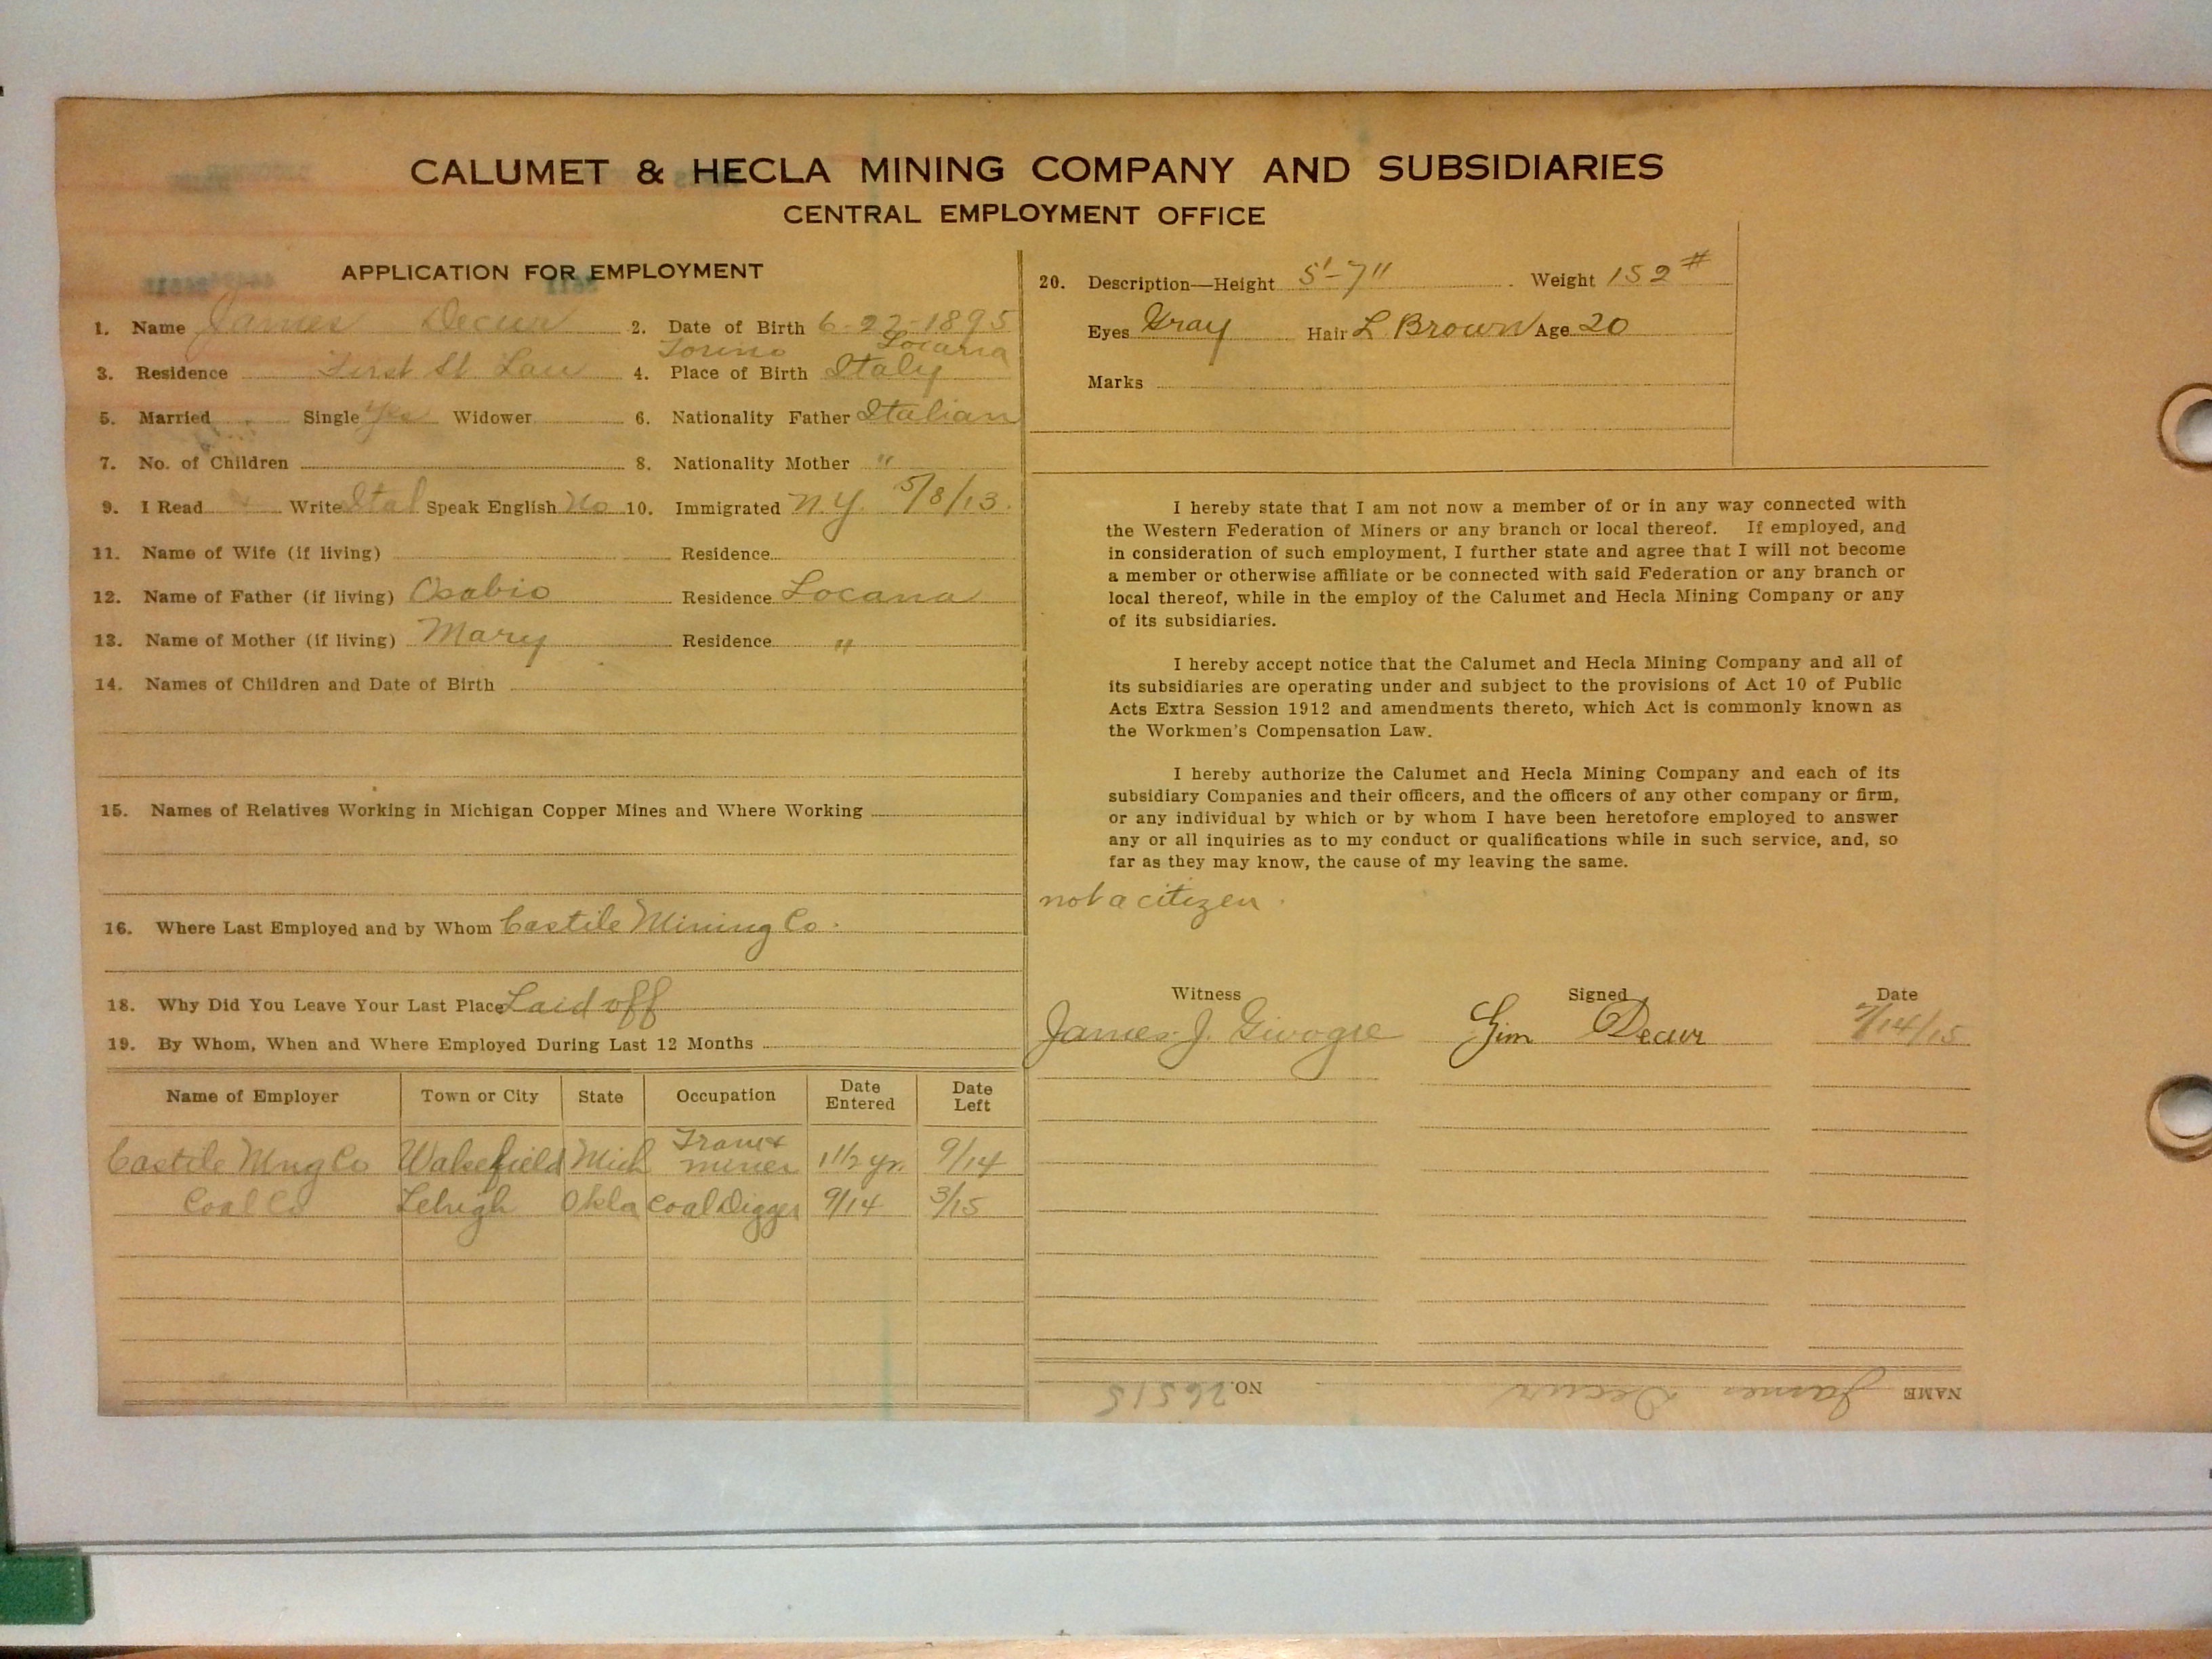 CALUMET & HECLA MINING COMPANY AND SUBSIDIARIES
CENTRAL EMPLOYMENT OFFICE
APPLICATION FOR EMPLOYMENT
1. Name James Decur 2. Date of Birth 6-22-1895
Torino Locana
3. Residence First St Lau 4. Place of Birth Italy
5. Married Single Yes Widower 6. Nationality Father Italian
7. No. of Children 8. Nationality Mother "
9. I Read Write Ital Speak English No 10. Immigrated N.Y. 5/8/13.
11. Name of Wife (if living) Residence
12. Name of Father (if living) Osabio Residence Locana
13. Name of Mother (if living) Mary Residence "
14. Names of Children and Date of Birth
15. Names of Relatives Working in Michigan Copper Mines and Where Working
16. Where Last Employed and by Whom Castile Mining Co.
18. Why Did You Leave Your Last Place Laid off
19. By Whom, When and Where Employed During Last 12 Months
Name of Employer Town or City State Occupation Date Entered Date Left
Castile Mng Co Wakefield Mich Tram & miner 1 1/2 yr. 9/14
Coal Co Lehigh Okla Coal Digger 9/14 3/15
20. Description—Height 5'-7" Weight 152#
Eyes Gray Hair L Brown Age 20
Marks
I hereby state that I am not now a member of or in any way connected with
the Western Federation of Miners or any branch or local thereof. If employed, and
in consideration of such employment, I further state and agree that I will not become
a member or otherwise affiliate or be connected with said Federation or any branch or
local thereof, while in the employ of the Calumet and Hecla Mining Company or any
of its subsidiaries.
I hereby accept notice that the Calumet and Hecla Mining Company and all of
its subsidiaries are operating under and subject to the provisions of Act 10 of Public
Acts Extra Session 1912 and amendments thereto, which Act is commonly known as
the Workmen's Compensation Law.
I hereby authorize the Calumet and Hecla Mining Company and each of its
subsidiary Companies and their officers, and the officers of any other company or firm,
or any individual by which or by whom I have been heretofore employed to answer
any or all inquiries as to my conduct or qualifications while in such service, and, so
far as they may know, the cause of my leaving the same.
not a citizen.
Witness Signed Date
James J. Givogre Jim Decur 7/14/15
NAME James Decur NO. 26515